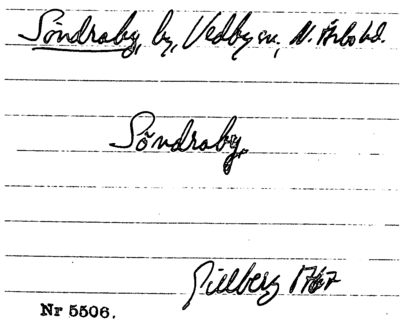 Söndraby, by, Vedby sn, N. Åsbo hd.
Söndraby.
Gillberg 1767
Nr 5506.